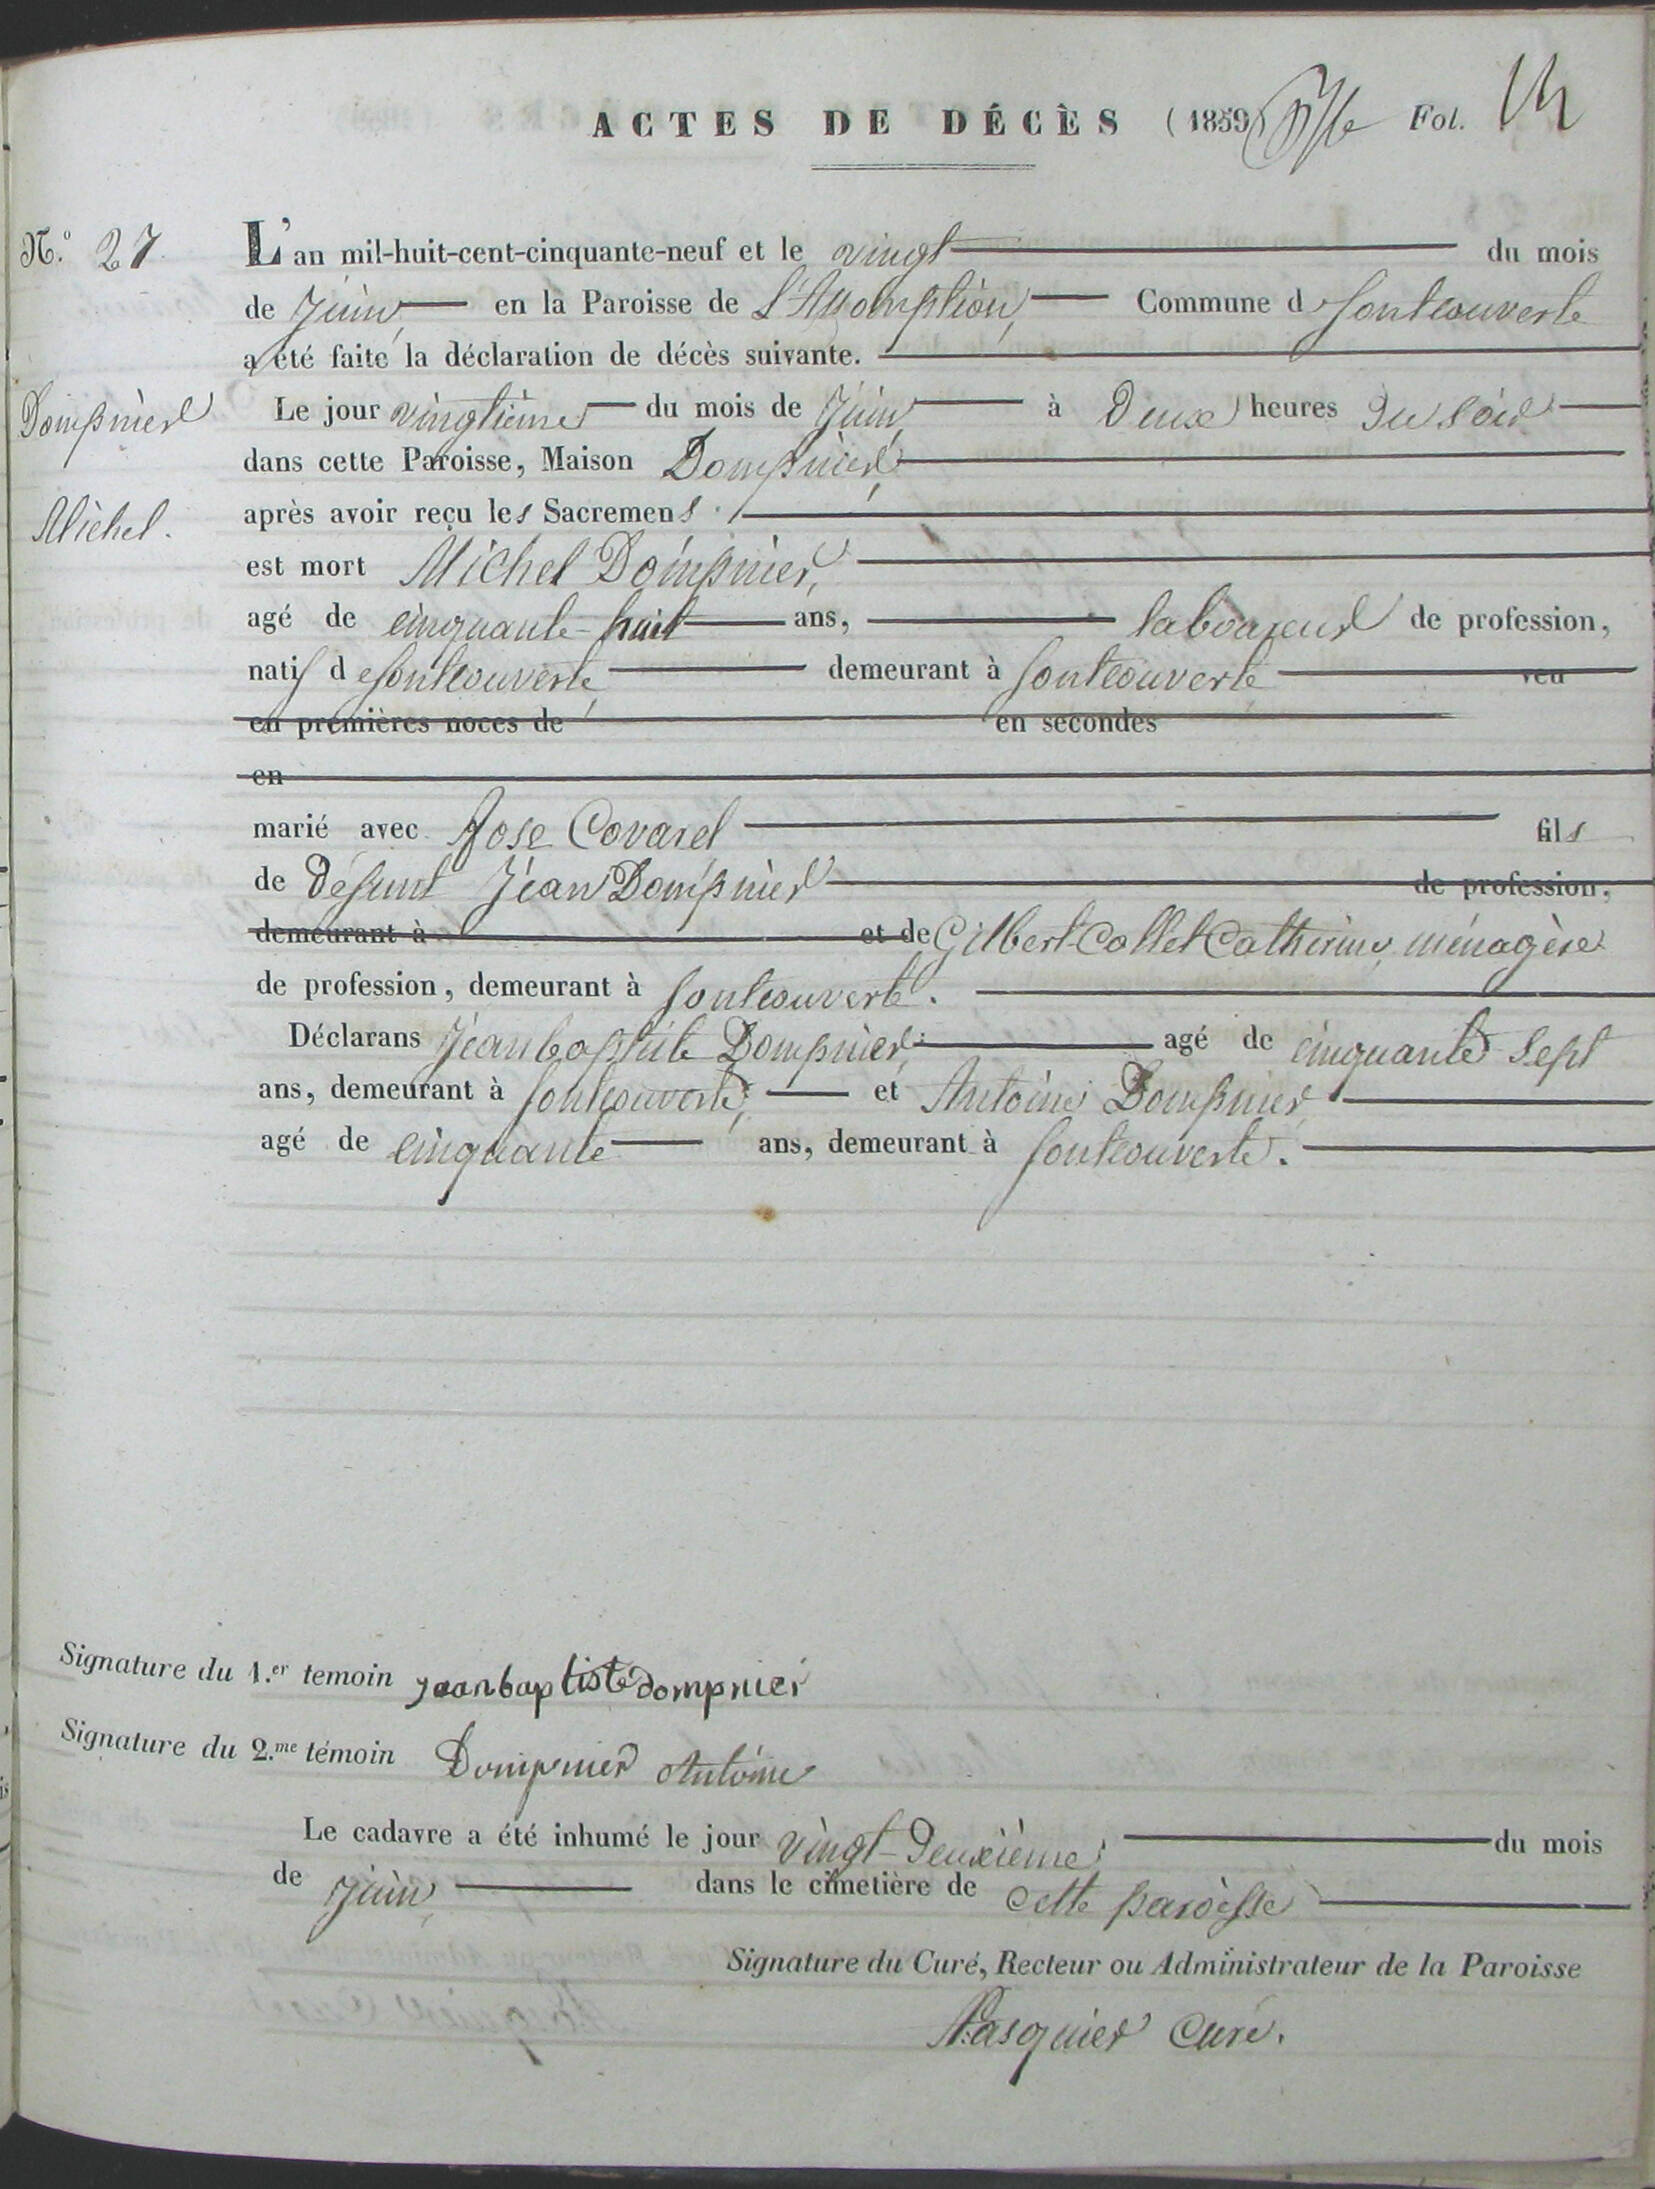 ACTES DE DÉCÈS (1859) Fol. 14
N.º 27 L'an mil-huit-cent-cinquante-neuf et le vingt du mois
de Juin, en la Paroisse de L'Assomption, Commune d fontcouverte
a été faite la déclaration de décès suivante.
Dompnier Le jour vingtième du mois de Juin à Deux heures Du soir
dans cette Paroisse, Maison Dompnier,
Michel. après avoir reçu les Sacremens.
est mort Michel Dompnier,
agé de cinquante-huit ans, laboureur de profession,
natif de fontcouverte, demeurant à fontcouverte veu
en premières noces de en secondes
en
marié avec Rose Covarel fils
de défunt Jean Dompnier de profession,
demeurant à et de Gilbert-Collet Catherine, ménagère
de profession, demeurant à fontcouverte.
Déclarans Jean baptiste Dompnier, agé de cinquante-sept
ans, demeurant à fontcouverte, et Antoine Dompnier,
agé de cinquante ans, demeurant à fontcouverte.
Signature du 1.er temoin jeanbaptiste dompnier
Signature du 2.me témoin Dompnier Antoine
Le cadavre a été inhumé le jour vingt-deuxième, du mois
de juin, dans le cimetière de cette paroisse
Signature du Curé, Recteur ou Administrateur de la Paroisse
Pasquier Curé.